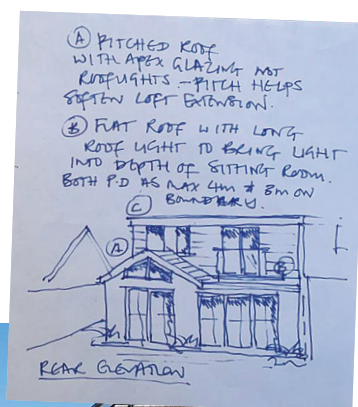 Ⓐ PITCHED ROOF
WITH APEX GLAZING NOT
ROOFLIGHTS. - PITCH HELPS
SOFTEN LOFT EXTENSION.
Ⓑ FLAT ROOF WITH LONG
ROOF LIGHT TO BRING LIGHT
INTO DEPTH OF SITTING ROOM.
BOTH P.D AS MAX 4m & 3m ON
BOUNDARY.
Ⓒ
Ⓐ
Ⓑ
REAR ELEVATION